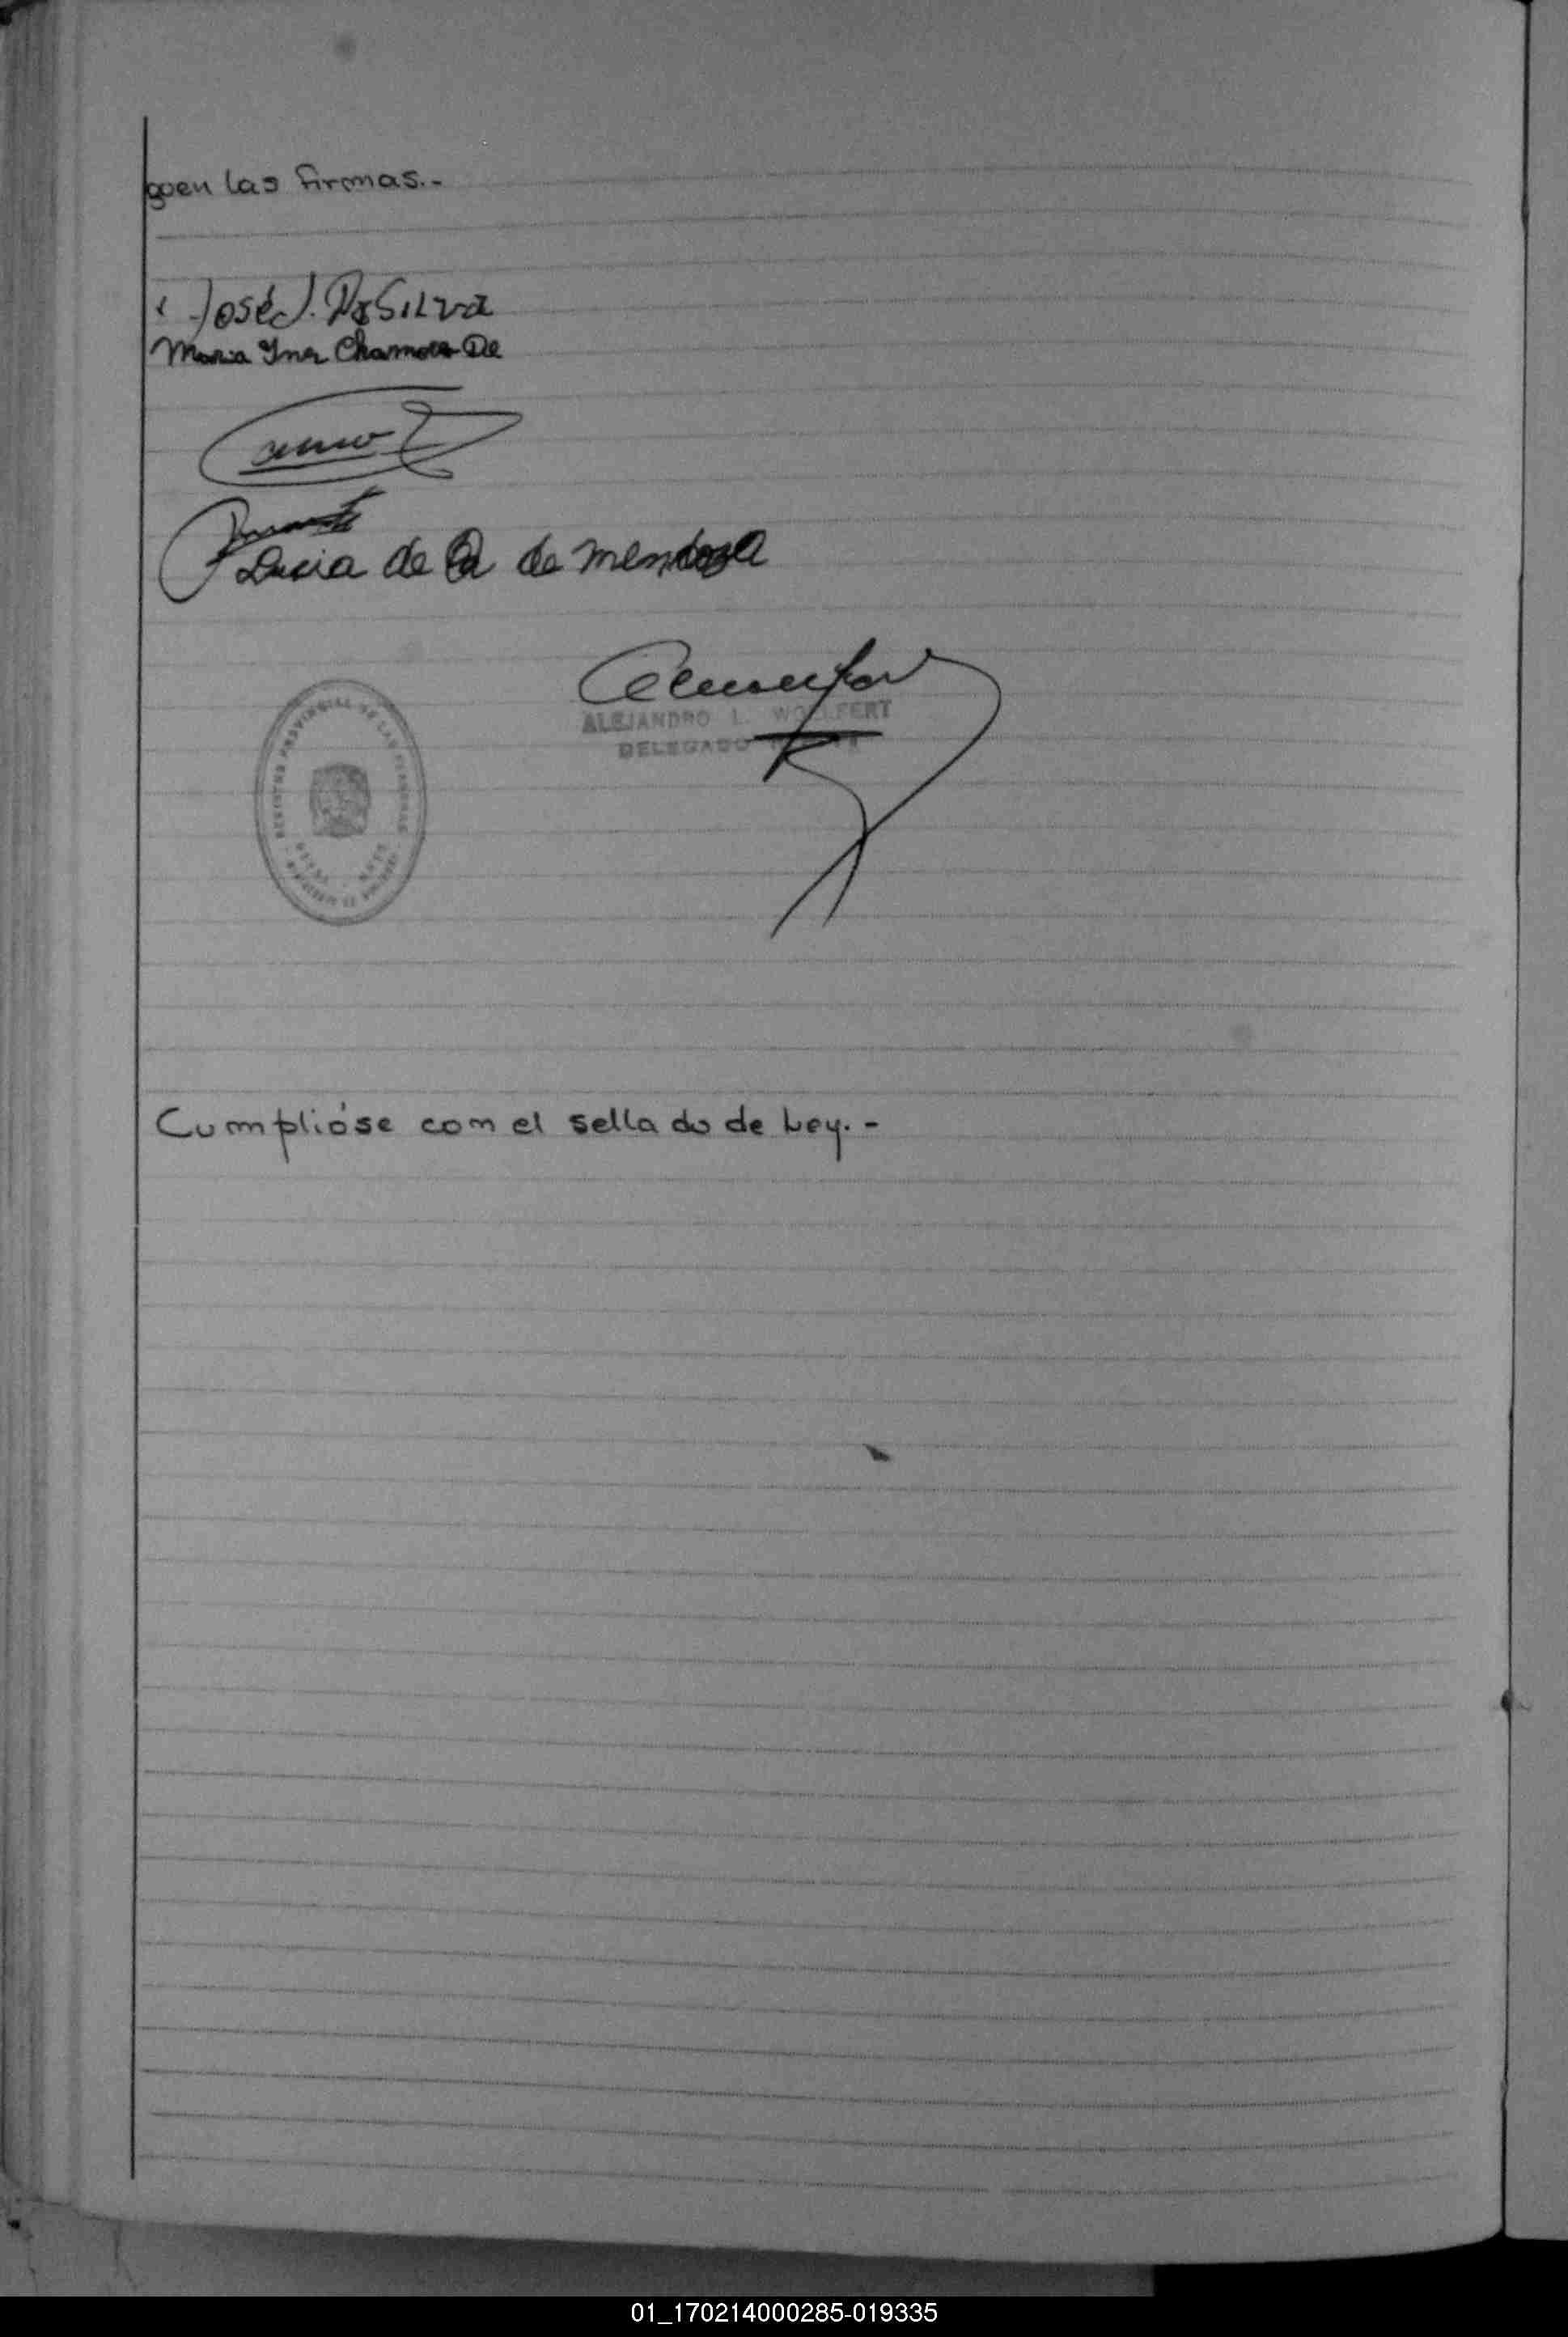 guen las firmas.-
José J. DaSilva
Maria Ines Chamorro De
Lucia de de Mendoza
ALEJANDRO L. WOELFERT
DELEGADO
REGISTRO PROVINCIAL DE LAS PERSONAS
Cumplióse con el sellado de Ley.-
01_170214000285-019335